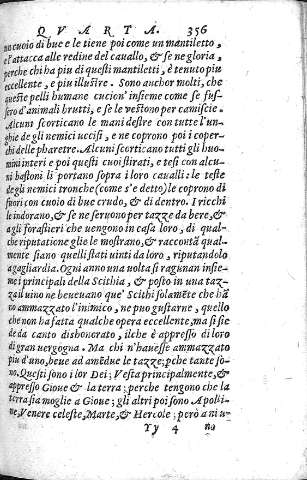 QVARTA. 356
un cuoio di bue e le tiene poi come un mantiletto,
e l'attacca alle redine del cauallo, & se ne gloria,
perche chi ha piu di questi mantiletti, è tenuto piu
eccellente, e piu illustre. Sono anchor molti, che
queste pelli humane cucion' insieme come se fus-
sero d'animali brutti, e se le uestono per camiscie.
Alcuni scorticano le mani destre con tutte l'un-
ghie de gli nemici uccisi, e ne coprono poi i coper-
chi delle pharetre. Alcuni scorticano tutti gli huo-
mini interi e poi questi cuoi stirati, e tesi con alcu-
ni bastoni li portano sopra i loro caualli: le teste
de gli nemici tronche (come s'e detto) le coprono di
fuori con cuoio di bue crudo, & di dentro. I ricchi
le indorano, & se ne seruono per tazze da bere, &
agli forastieri che uengono in casa loro, di qual-
che riputatione glie le mostrano, & raccontã qual-
mente siano quelli stati uinti da loro, riputandolo
a gagliardia. Ogni anno una uolta si ragunan insie-
me i principali della Scithia, & posto in una taz-
za il uino ne beueuano que' Scithi solamẽte che hã
no ammazzato l'inimico, ne puo gustarne, quello
che non ha fatta qualche opera eccellente, ma si sie
de da canto dishonorato, ilche è appresso di loro
di gran uergogna. Ma chi n'hauesse ammazzato
piu d'uno, beue ad amẽdue le tazze; pche tante so-
no. Questi sono i lor Dei; Vesta principalmente, &
appresso Gioue & la terra; perche tengono che la
terra sia moglie a Gioue; gli altri poi sono Apolli-
ne, Venere celeste, Marte, & Hercole; però a niu-
Yy 4 no